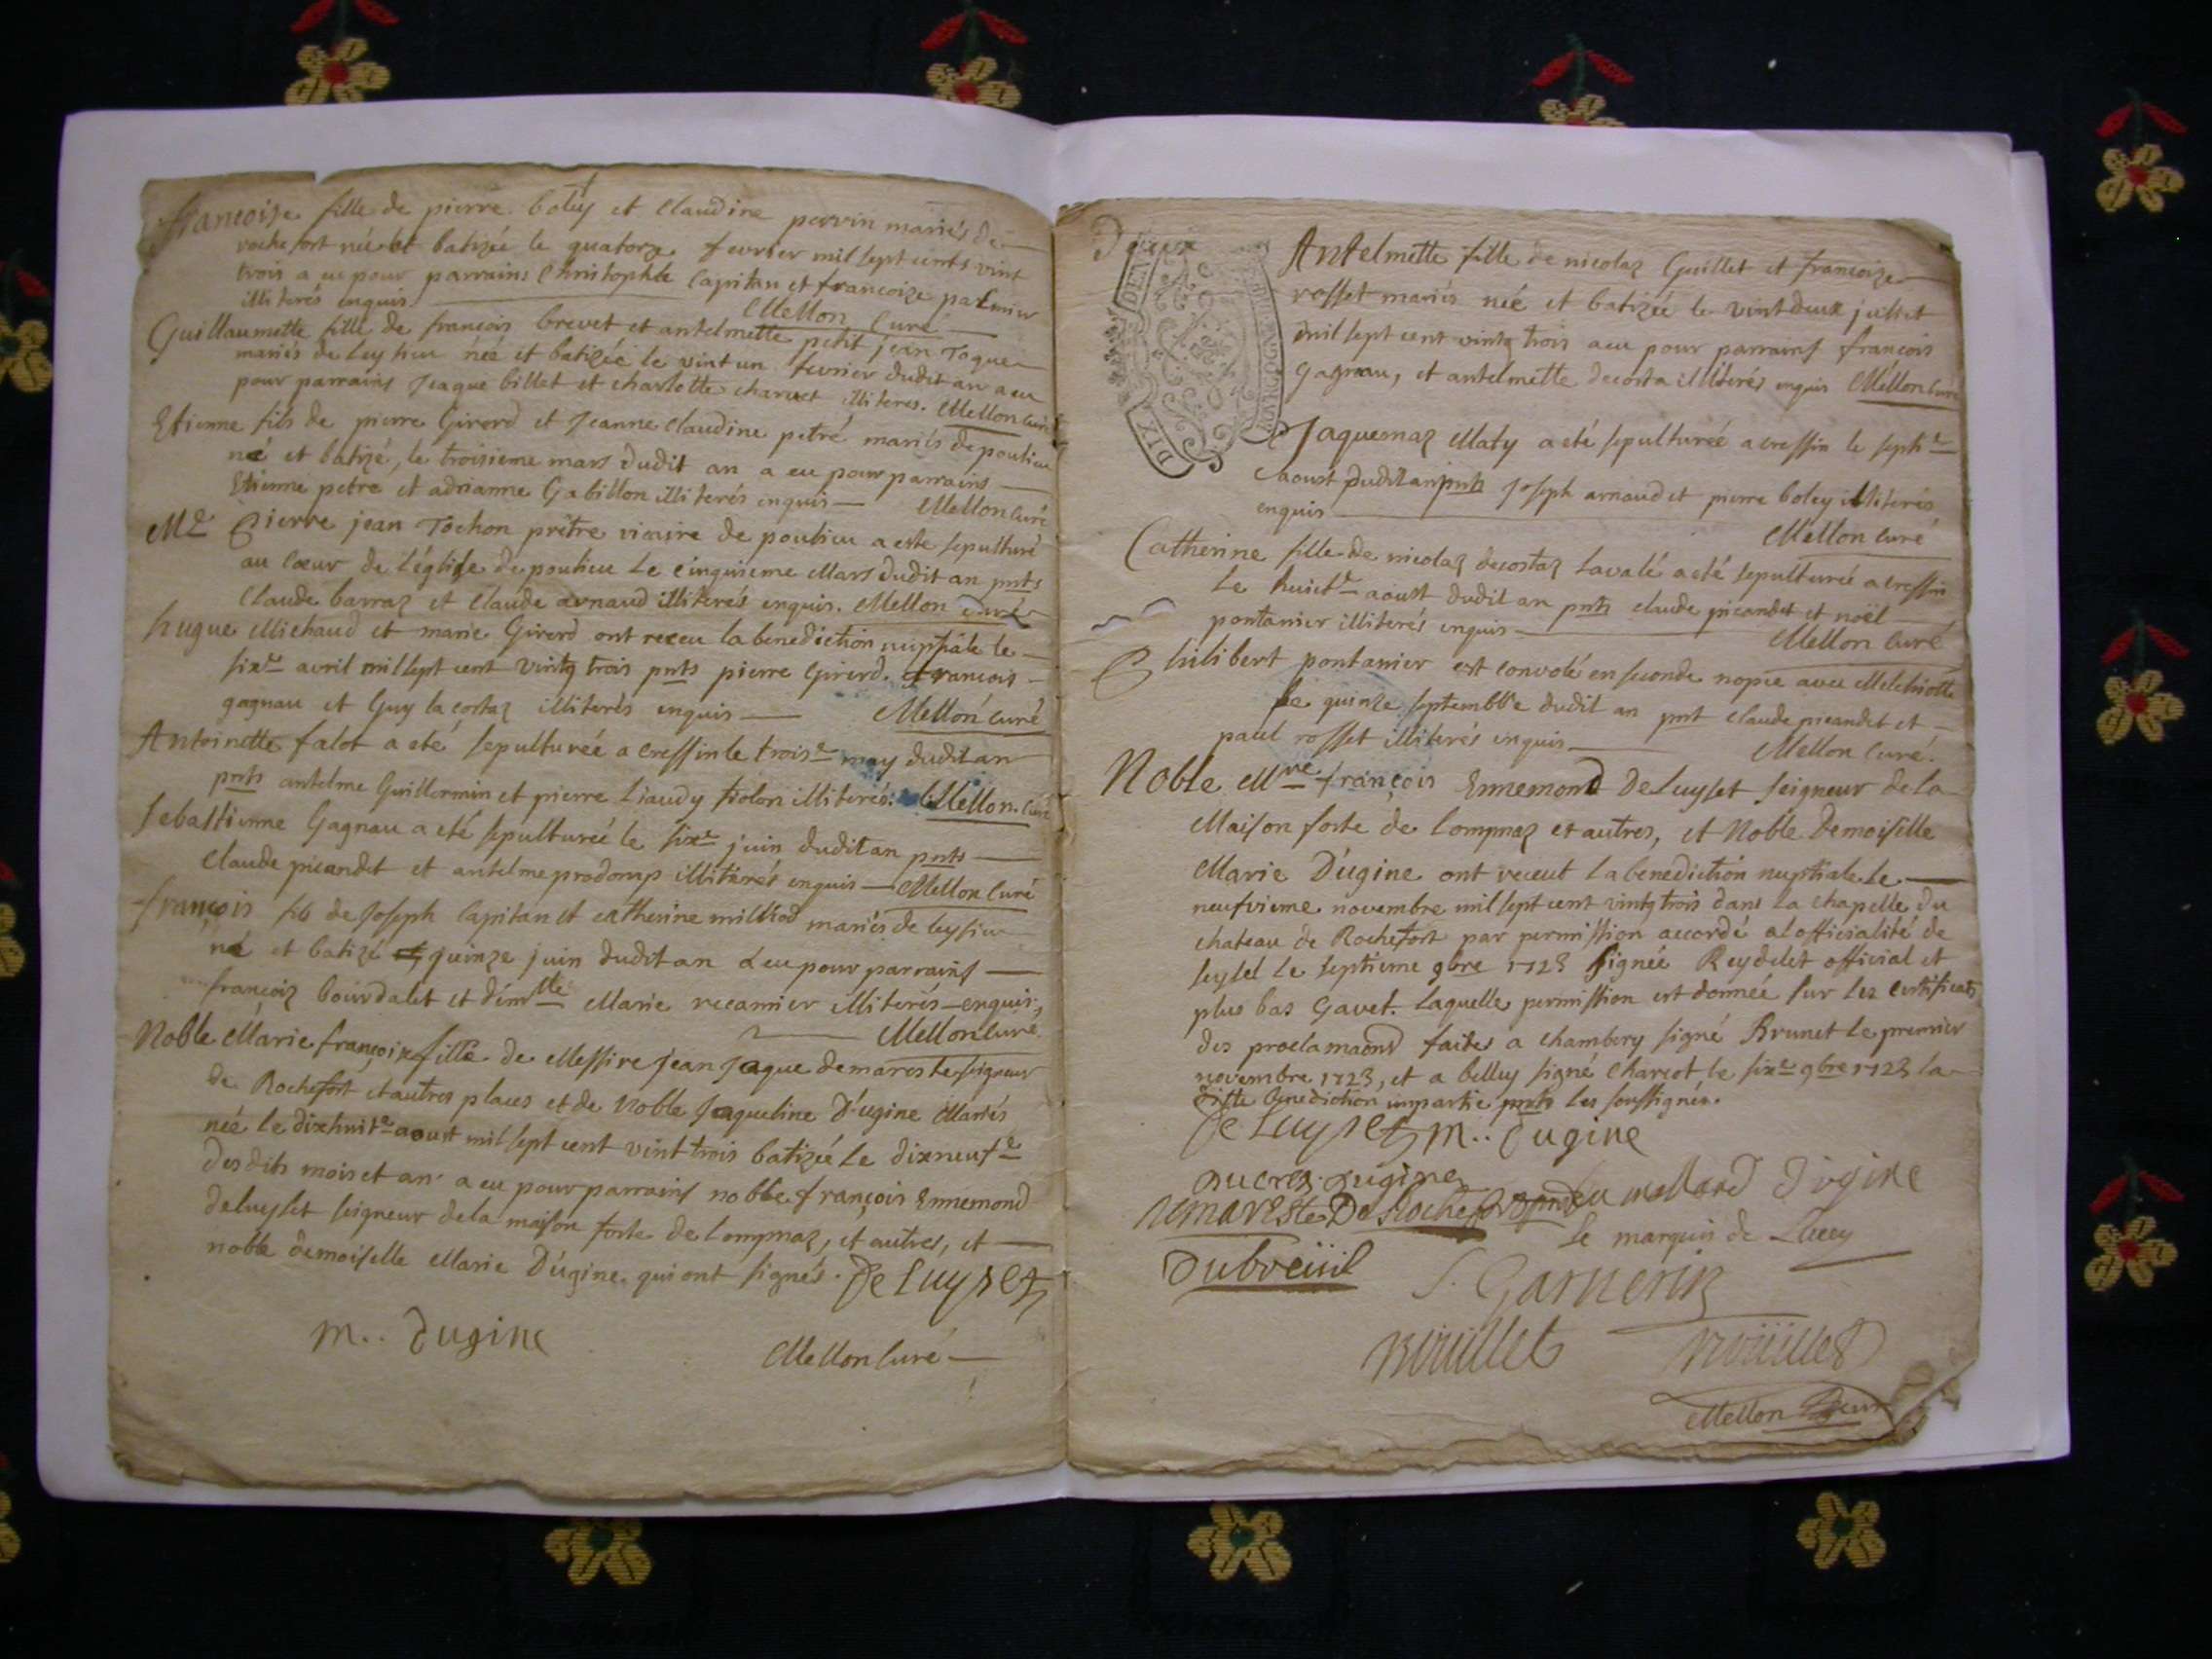 françoise fille de pierre boley et Claudine perrin mariés de
rochefort née et batizée le quatorze fevrier mil sept cents vint
trois a eu pour parrains Christophle Capitan et francoize
illiterés enquis
Mellon Curé
Guillaumette fille de françois brevet et antelmette petit jean Toque
mariés de leysieu née et batizée le vint un fevrier dudit an a eu
pour parrains Jaque billet et charlotte charvet illiteres. Mellon curé
Etienne fils de pierre Girerd et Jeanne Claudine petré mariés de poulieu
né et batizé, le troisieme mars dudit an a eu pour parrains
Etienne petre et adrianne Gabillon illiterés enquis Mellon Curé
Mre Pierre jean Tochon prêtre vicaire de poulieu a esté sepulturé
au cœur de l'églize de poulieu Le cinquieme Mars dudit an pnts
Claude barraz et Claude arnaud illiterés enquis. Mellon curé
hugue Michaud et marie Girerd ont receu la benediction nuptiale le
sixe avril mil sept cent vintg trois pnts pierre Girerd. francois
gagnau et Guy la costaz illiterés enquis Mellon curé
Antoinette falot a eté sepulturée a cressin le troise may dudit an
pnts antelme Guillermin et pierre Liaudy violon illiteres. Mellon. Curé
Sebastienne Gagnau a eté sepulturée le sixe juin dudit an pnts
Claude picandet et antelme prodomp illiterés enquis Mellon Curé
françois fils de Joseph Capitan et catherine milliod mariés de leysieu
né et batizé quinze juin dudit an a eu pour parrains
françoiz bourdalet et demlle Marie recamier illiterés enquis
Mellon Curé
Noble Marie françoise fille de Messire Jean Jaque demareste seigneur
de Rochefort et autres places et de Noble Jaqueline D'ugine Mariés
née le dixhuite aoust mil sept cent vint trois batizée Le dixneufe
des dits mois et an a eu pour parrains noble françois Ennemond
deluyset seigneur dela maison forte de lompnaz, et autres, et
noble demoiselle Marie D'ugine qui ont signés. De Luyset
m.. dugine
Mellon Curé
Antelmette fille de nicolaz Guillet et francoize
rosset mariés née et batizée le vint deux juillet
mil sept cent vintg trois a eu pour parrains françois
Gagnau, et antelmette decosta illiterés enquis Mellon Curé
DIX DEN
BOVRGOGNE
Jaquemaz Maty a eté sepulturée a cressin le septie
aoust dudit an pnts Joseph arnaud et pierre boley illiterés
enquis
Mellon Curé
Catherine fille de nicolaz decostaz Lavalé a eté sepulturée a cressin
Le huicte aoust dudit an pnts claude picandet et noël
pontanier illiterés enquis Mellon Curé
Philibert pontanier est convolé en seconde nopce avec Melchiotte
le quinze septembbre dudit an pnt Claude picandet et
paul rosset illiterés enquis Mellon Curé.
Noble Mre françois Ennemond Deluyset seigneur de la
Maison forte de lompnaz et autres, et Noble Demoiselle
Marie D'ugine ont receut La benediction nuptiale Le
neufvieme novembre mil sept cent vintg trois dans La chapelle du
chateau de Rochefort par permission accordé a lofficialité de
seysel le septieme 9bre 1723 signée Reydelet official et
plus bas Gavet. Laquelle permission est donnée sur Les certificats
des proclamaons faites a chambery signé Brunet le premier
novembre 1723, et a belley signé Charcot le sixe 9bre 1723 la
ditte Benediction impartie pnts Les soussignés.
De Luyset m.. dugine
Ducrez. Dugine
demareste De Rochefort mollard d'ugine
le marquis de Lucey
Dubreüil S. Garnerin
Roüillet Roüillet
Mellon curé